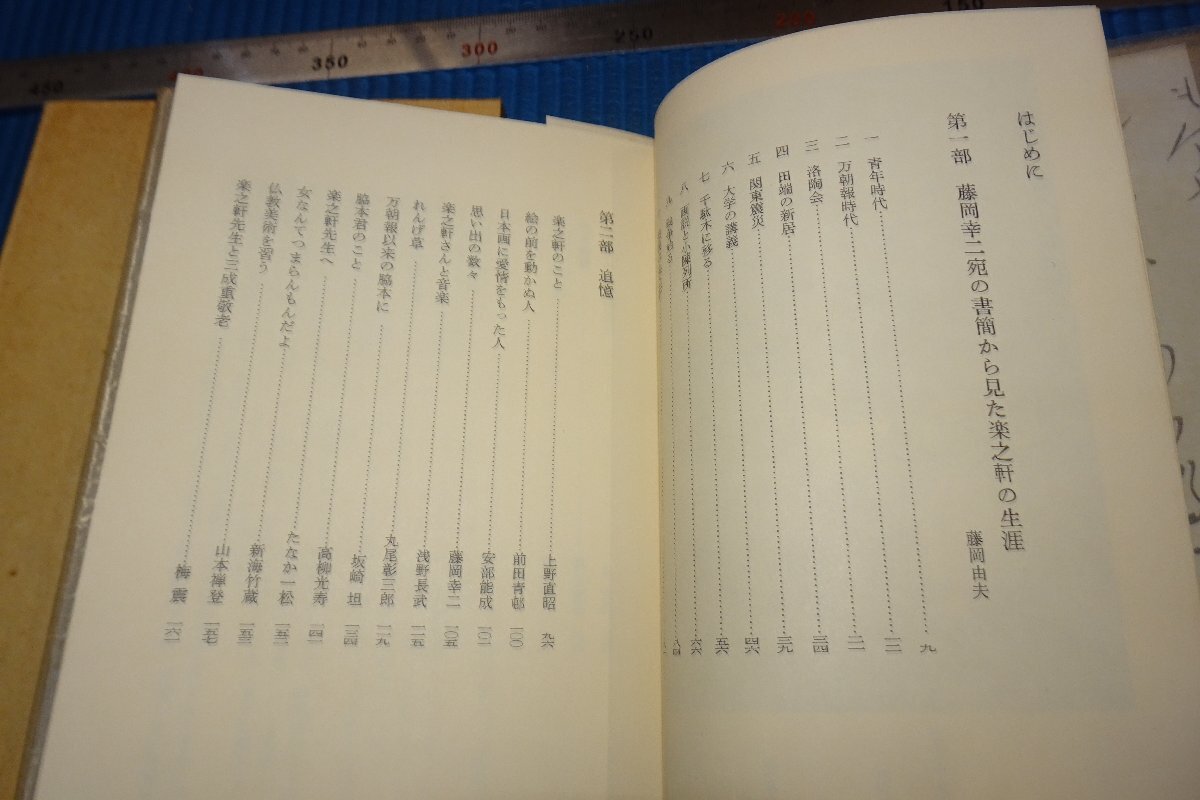 はじめに
第一部 藤岡幸二宛の書簡から見た楽之軒の生涯
藤岡由夫
一 青年時代……九
二 万朝報時代……一二
三 洛陶会……二一
四 田端の新居……三四
五 関東震災……三九
六 大学の講義……四六
七 千駄木に移る……五六
八 画説と小陳列所……六六
八四
第二部 追憶
楽之軒のこと……上野直昭 九六
絵の前を動かぬ人……前田青邨 一〇〇
日本画に愛情をもった人……安部能成 一〇一
思い出の数々……藤岡幸二 一〇五
楽之軒さんと音楽……浅野長武 一一五
れんげ草……丸尾彰三郎 一一九
万朝報以来の脇本に……坂崎 坦 一三四
脇本君のこと……高柳光寿 一四一
楽之軒先生へ……たなか一松 一五一
女なんてつまらんもんだよ……新海竹蔵 一五三
仏教美術を習う……山本禅登 一五七
楽之軒先生と三成重敬老……梅 震 一六一
450
350
300
250
200
150